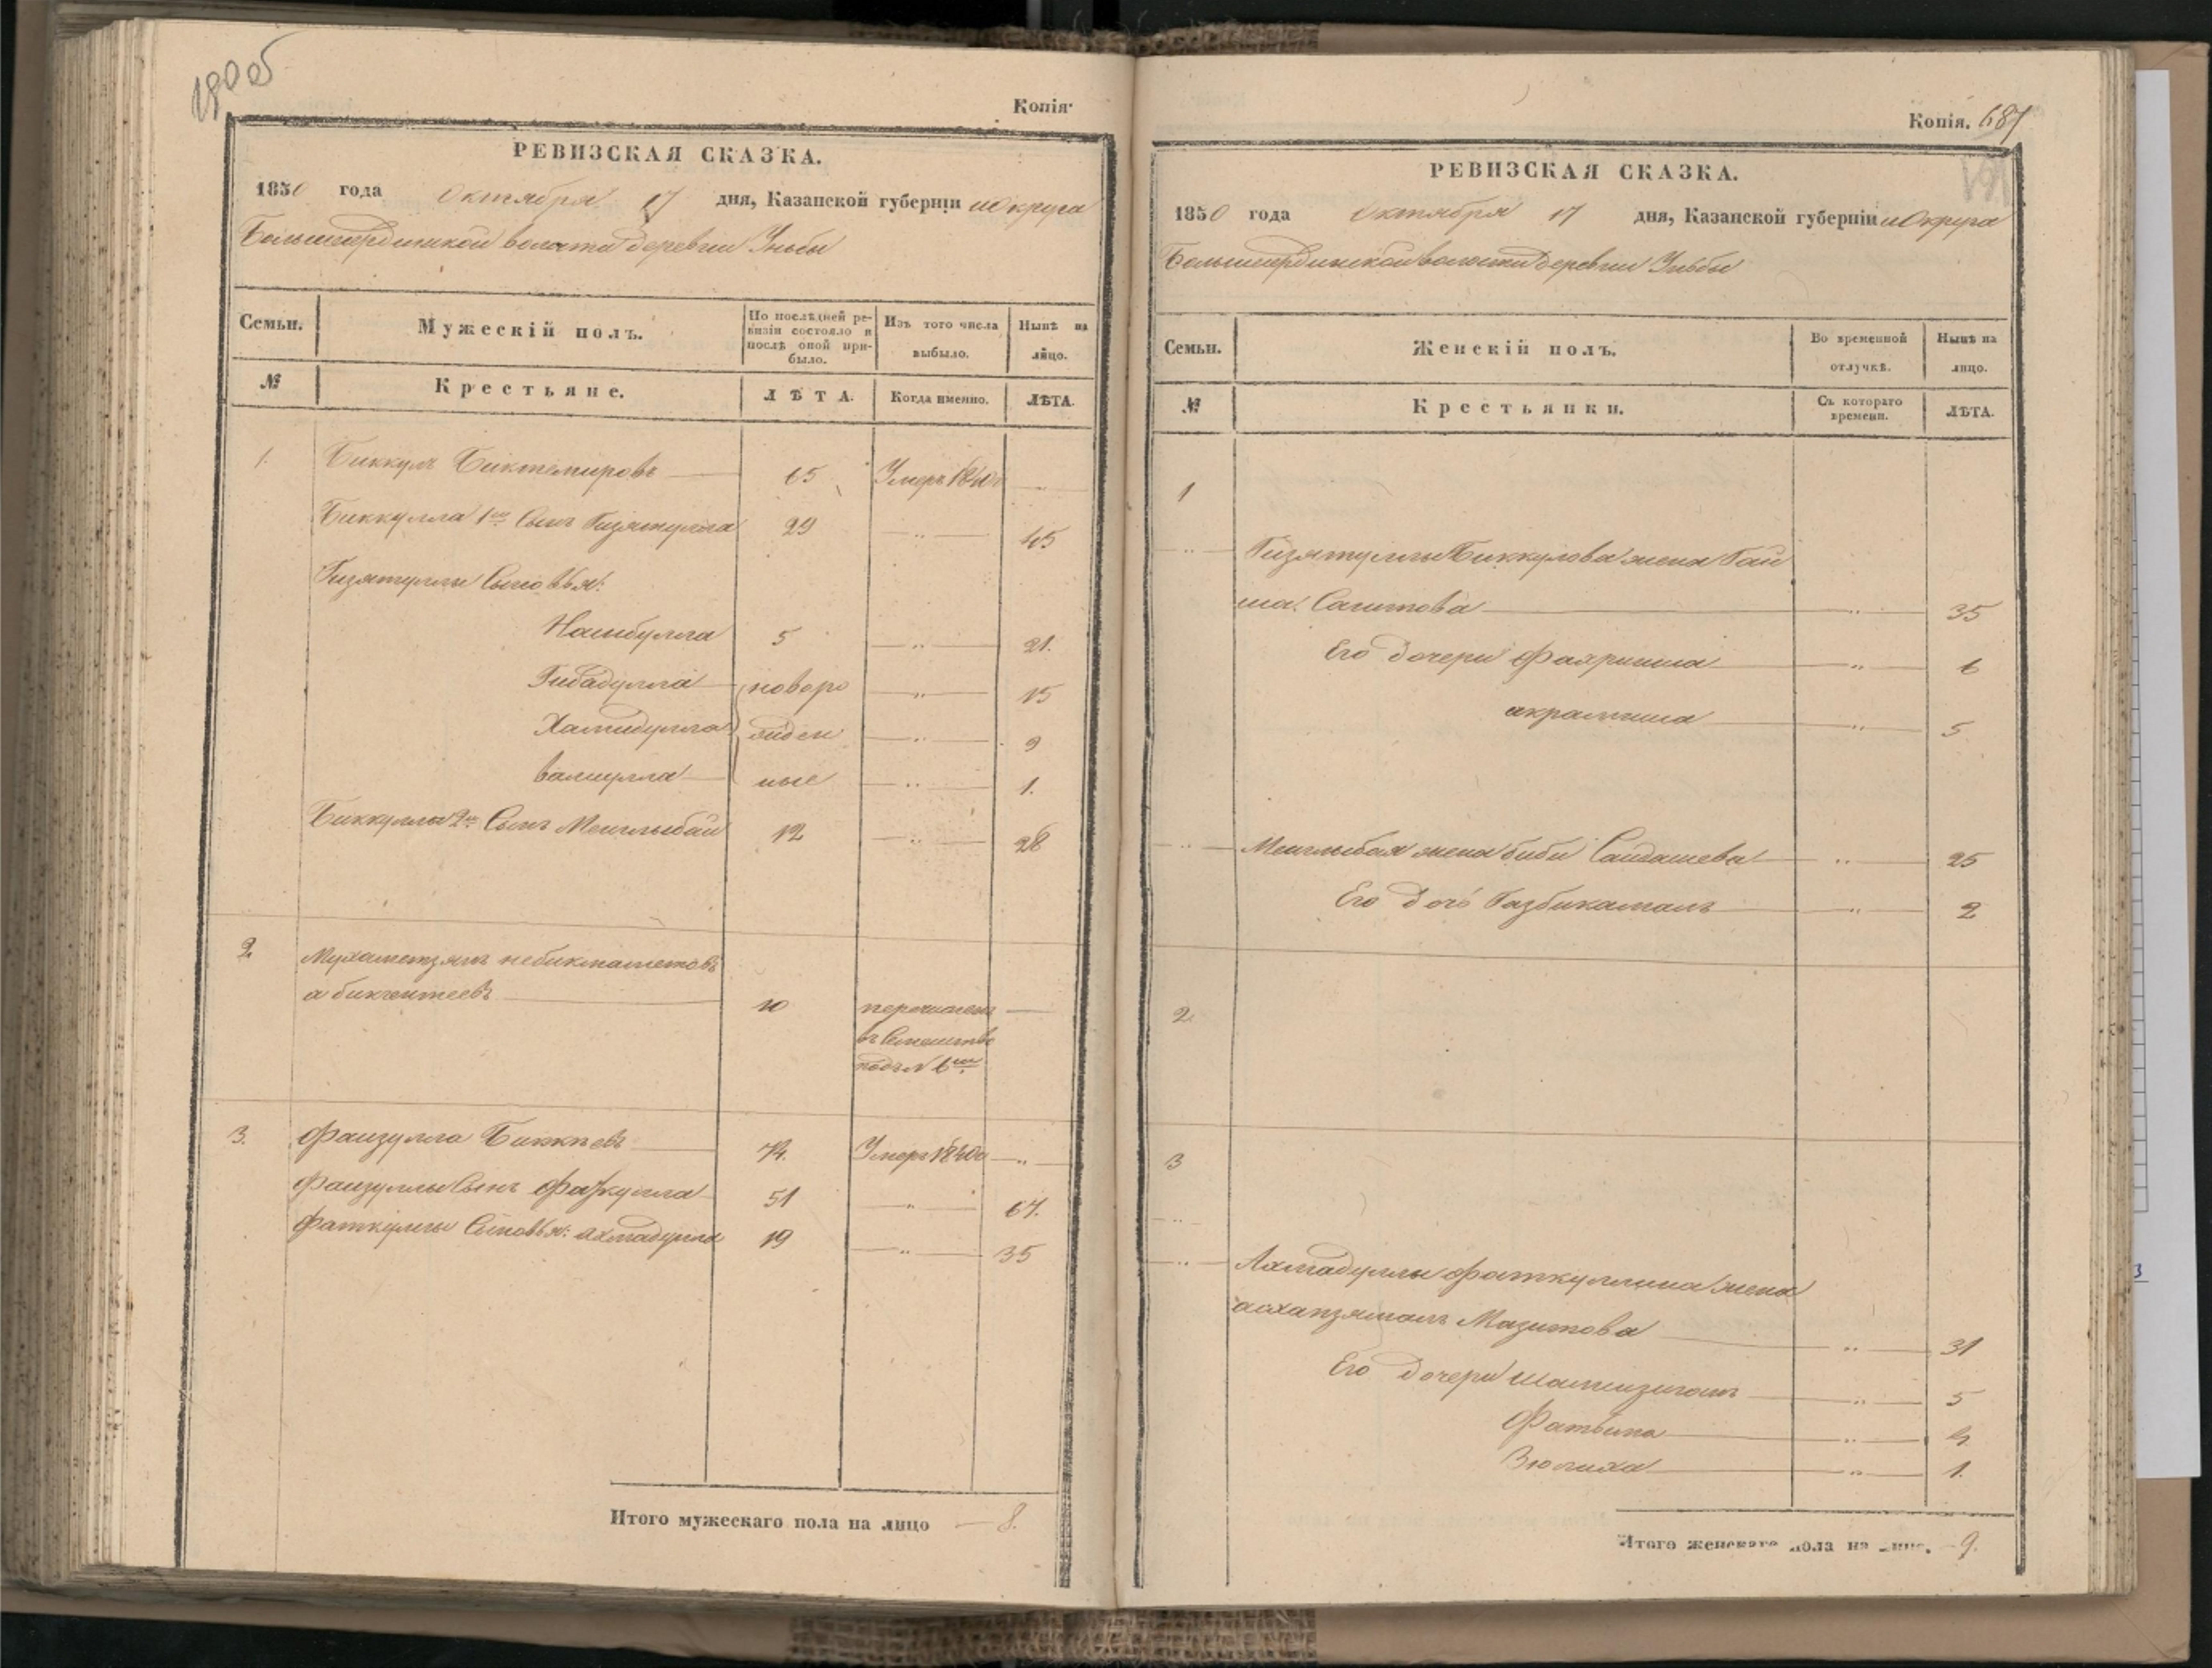 190 об
Копія.
РЕВИЗСКАЯ СКАЗКА.
1850 года октября 17 дня, Казанской губерніи и округа
Большеатрдинской волости деревни Уньбы
Семьи.
Мужескій полъ.
По послѣдней ревизіи состояло и послѣ оной прибыло.
Изъ того числа выбыло.
Нынѣ на лицо.
№
Крестьяне.
ЛѢТА.
Когда именно.
ЛѢТА.
1. Биккулъ Биктемировъ 65 Умеръ 1840
Биккулла 1й Сынъ Гизятулла 29 45
Гизятуллы Сыновья:
5 21.
Гибадулла новоро 15
Хамидулла жден 9
Валиулла ные 1.
Биккуллы 2й Сынъ Менглыбай 12 28
2 Мухаметзянъ небиктаметовъ
а бикчентеевъ 10 перечисленъ
въ Семейство
подъ № 6м
3. Фаизулла Биккѣевъ 74. Умеръ 1840
Фаизуллы Сынъ Фаткулла 51 67.
Фаткуллы Сыновья: Ахмадулла 19 35
Итого мужескаго пола на лицо 8.
Копія. 687
191
РЕВИЗСКАЯ СКАЗКА.
1850 года октября 17 дня, Казанской губерніи и Округа
Большеатрдинской волости деревни Уньбы
Семьи.
Женскій полъ.
Во временной отлучкѣ.
Нынѣ на лицо.
№
Крестьянки.
Съ котораго времени.
ЛѢТА.
1
Гизятуллы Биккулова жена Гай
ша Сагитова 35
Его дочери 6
акрамниса 5
Менглыбая жена биби Сайдашева 25
Его дочь Газбикамалъ 2
2
3
Ахмадуллы Фаткуллина жена
асхапзямалъ Мазитова 31
Его дочери 5
Фатыма 4
Зюлиха 1.
Итого женскаго пола на лицо. 9.